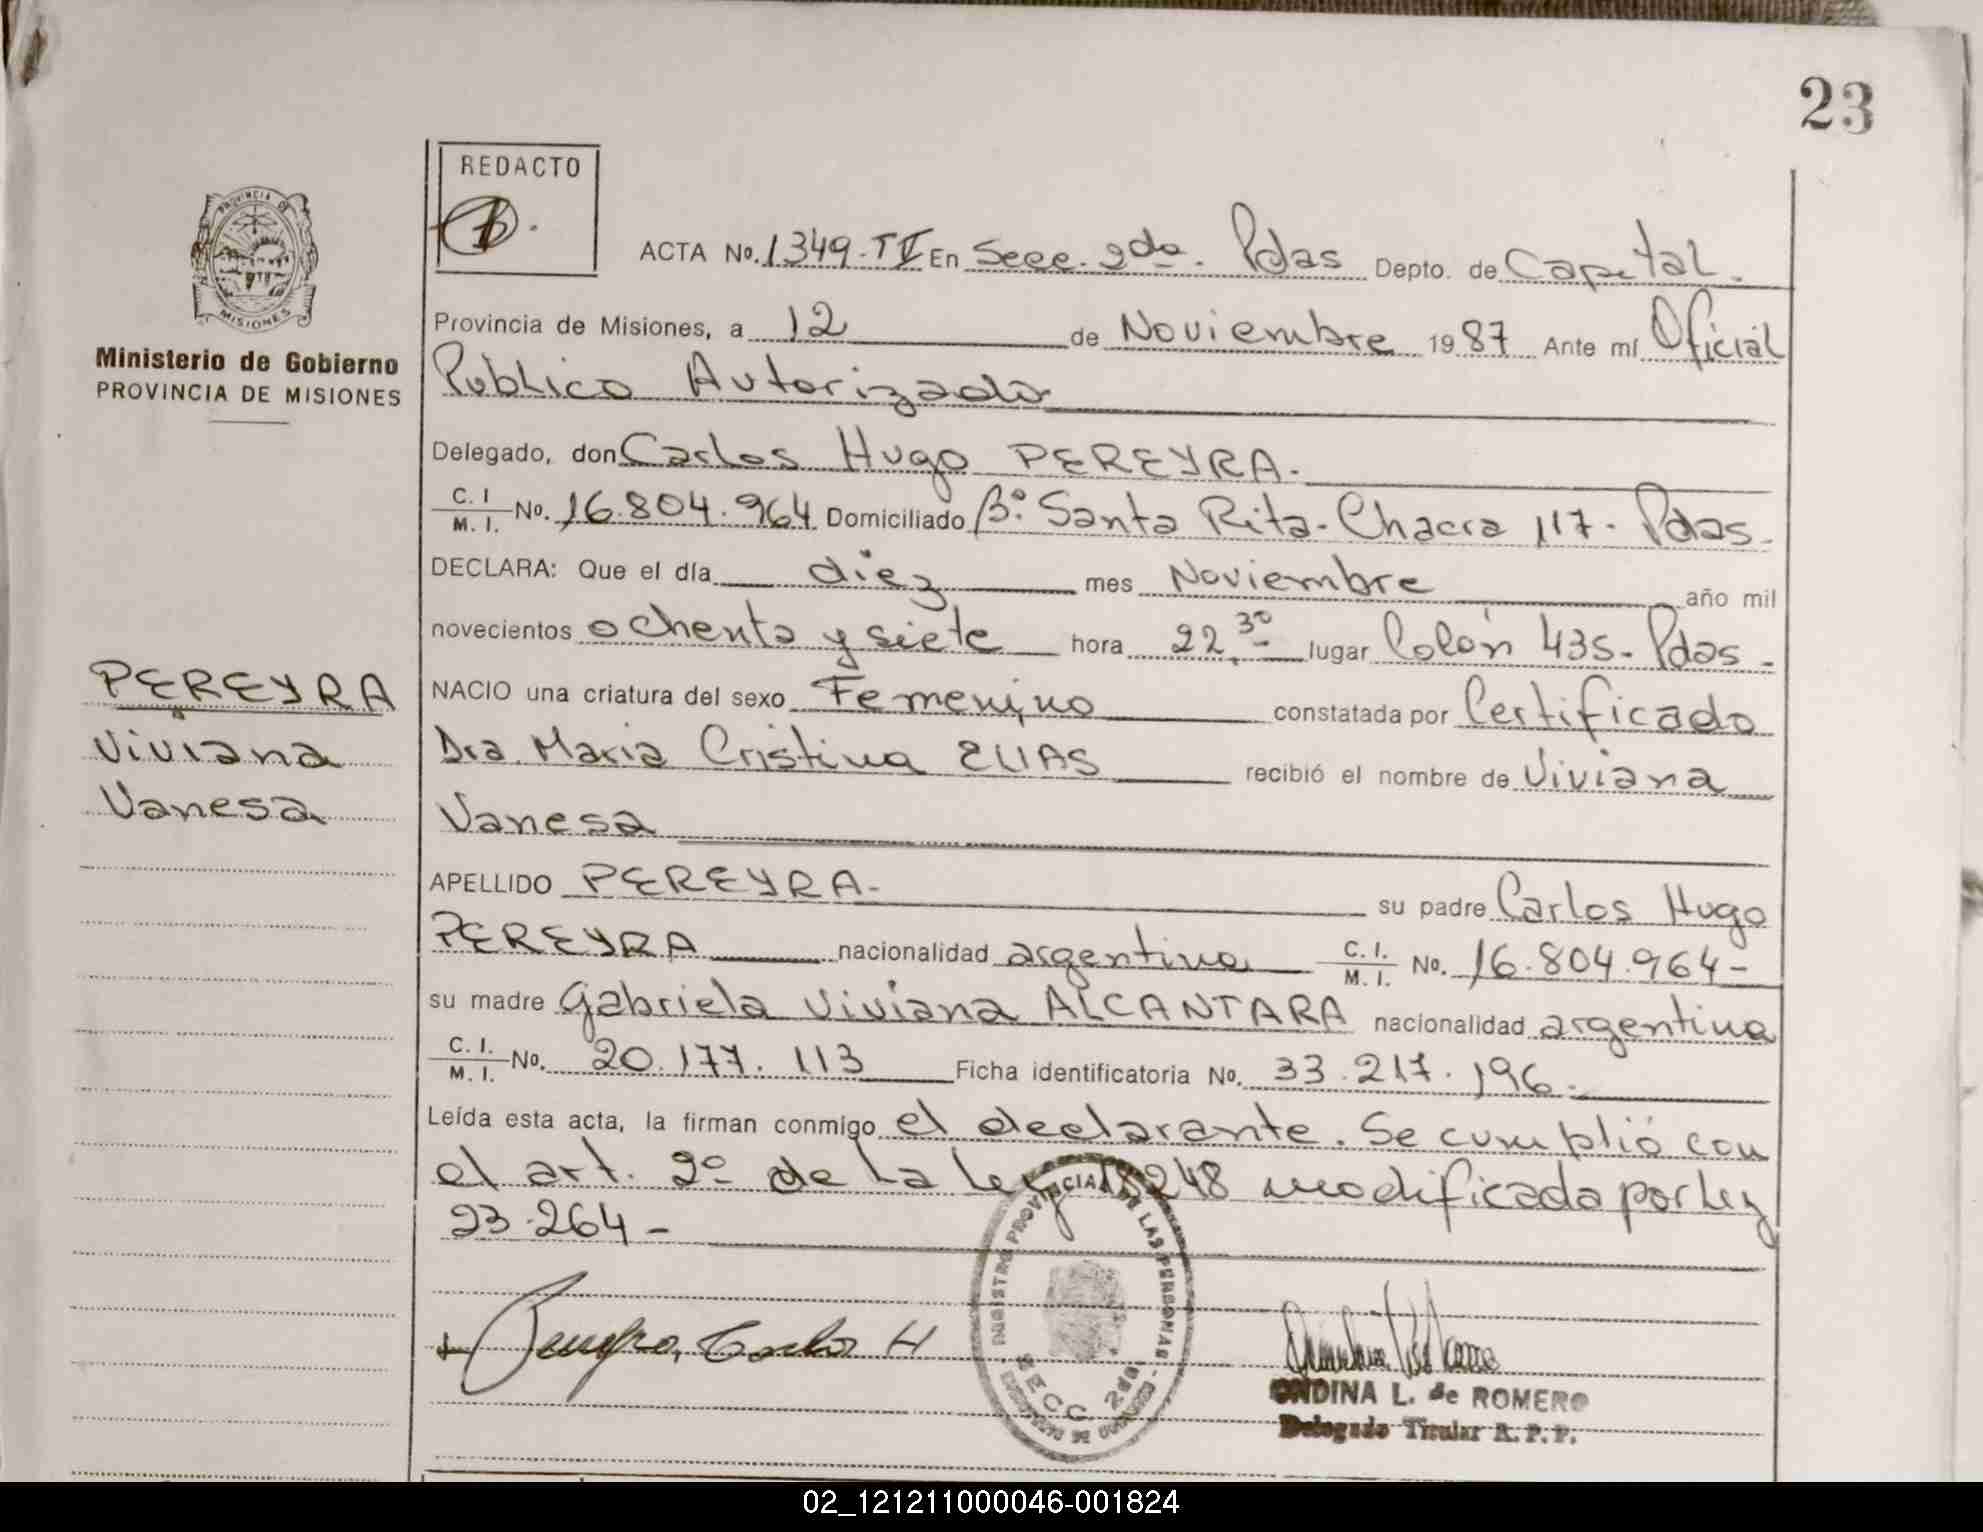 23
REDACTO
PROVINCIA DE
MISIONES
Ministerio de Gobierno
PROVINCIA DE MISIONES
ACTA No. 1349-TV En Secc. 2da. Pdas Depto. de Capital.
Provincia de Misiones, a 12 de Noviembre 1987 Ante mí Oficial
Publico Autorizado
Delegado, don Carlos Hugo PEREYRA.
C. I / M. I. No. 16.804.964 Domiciliado Bº. Santa Rita-Chacra 117. Pdas.
DECLARA: Que el día diez mes Noviembre año mil
novecientos ochenta y siete hora 22,30 lugar Colón 435- Pdas-
NACIO una criatura del sexo Femenino constatada por Certificado
Dra. Maria Cristina ELIAS recibió el nombre de Viviana
Vanesa
APELLIDO PEREYRA- su padre Carlos Hugo
PEREYRA nacionalidad argentina C. I. / M. I. No. 16.804.964-
su madre Gabriela Viviana ALCANTARA nacionalidad argentina
C. I. / M. I. No. 20.177.113 Ficha identificatoria No. 33.217.196.
Leída esta acta, la firman conmigo el declarante. Se cumplió con
el art. 2º de la Ley 18248 modificada por ley
23.264-
PEREYRA
Viviana
Vanesa
Carlos H
REGISTRO PROVINCIAL DE LAS PERSONAS
SECC. 2da.
ONDINA L. de ROMERO
Delegado Titular R. P. P.
02_121211000046-001824